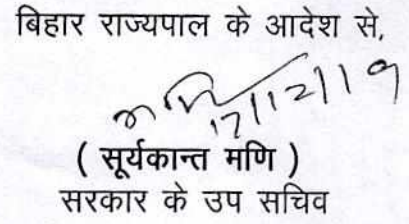 बिहार राज्यपाल के आदेश से,
17/12/19
( सूर्यकान्त मणि )
सरकार के उप सचिव